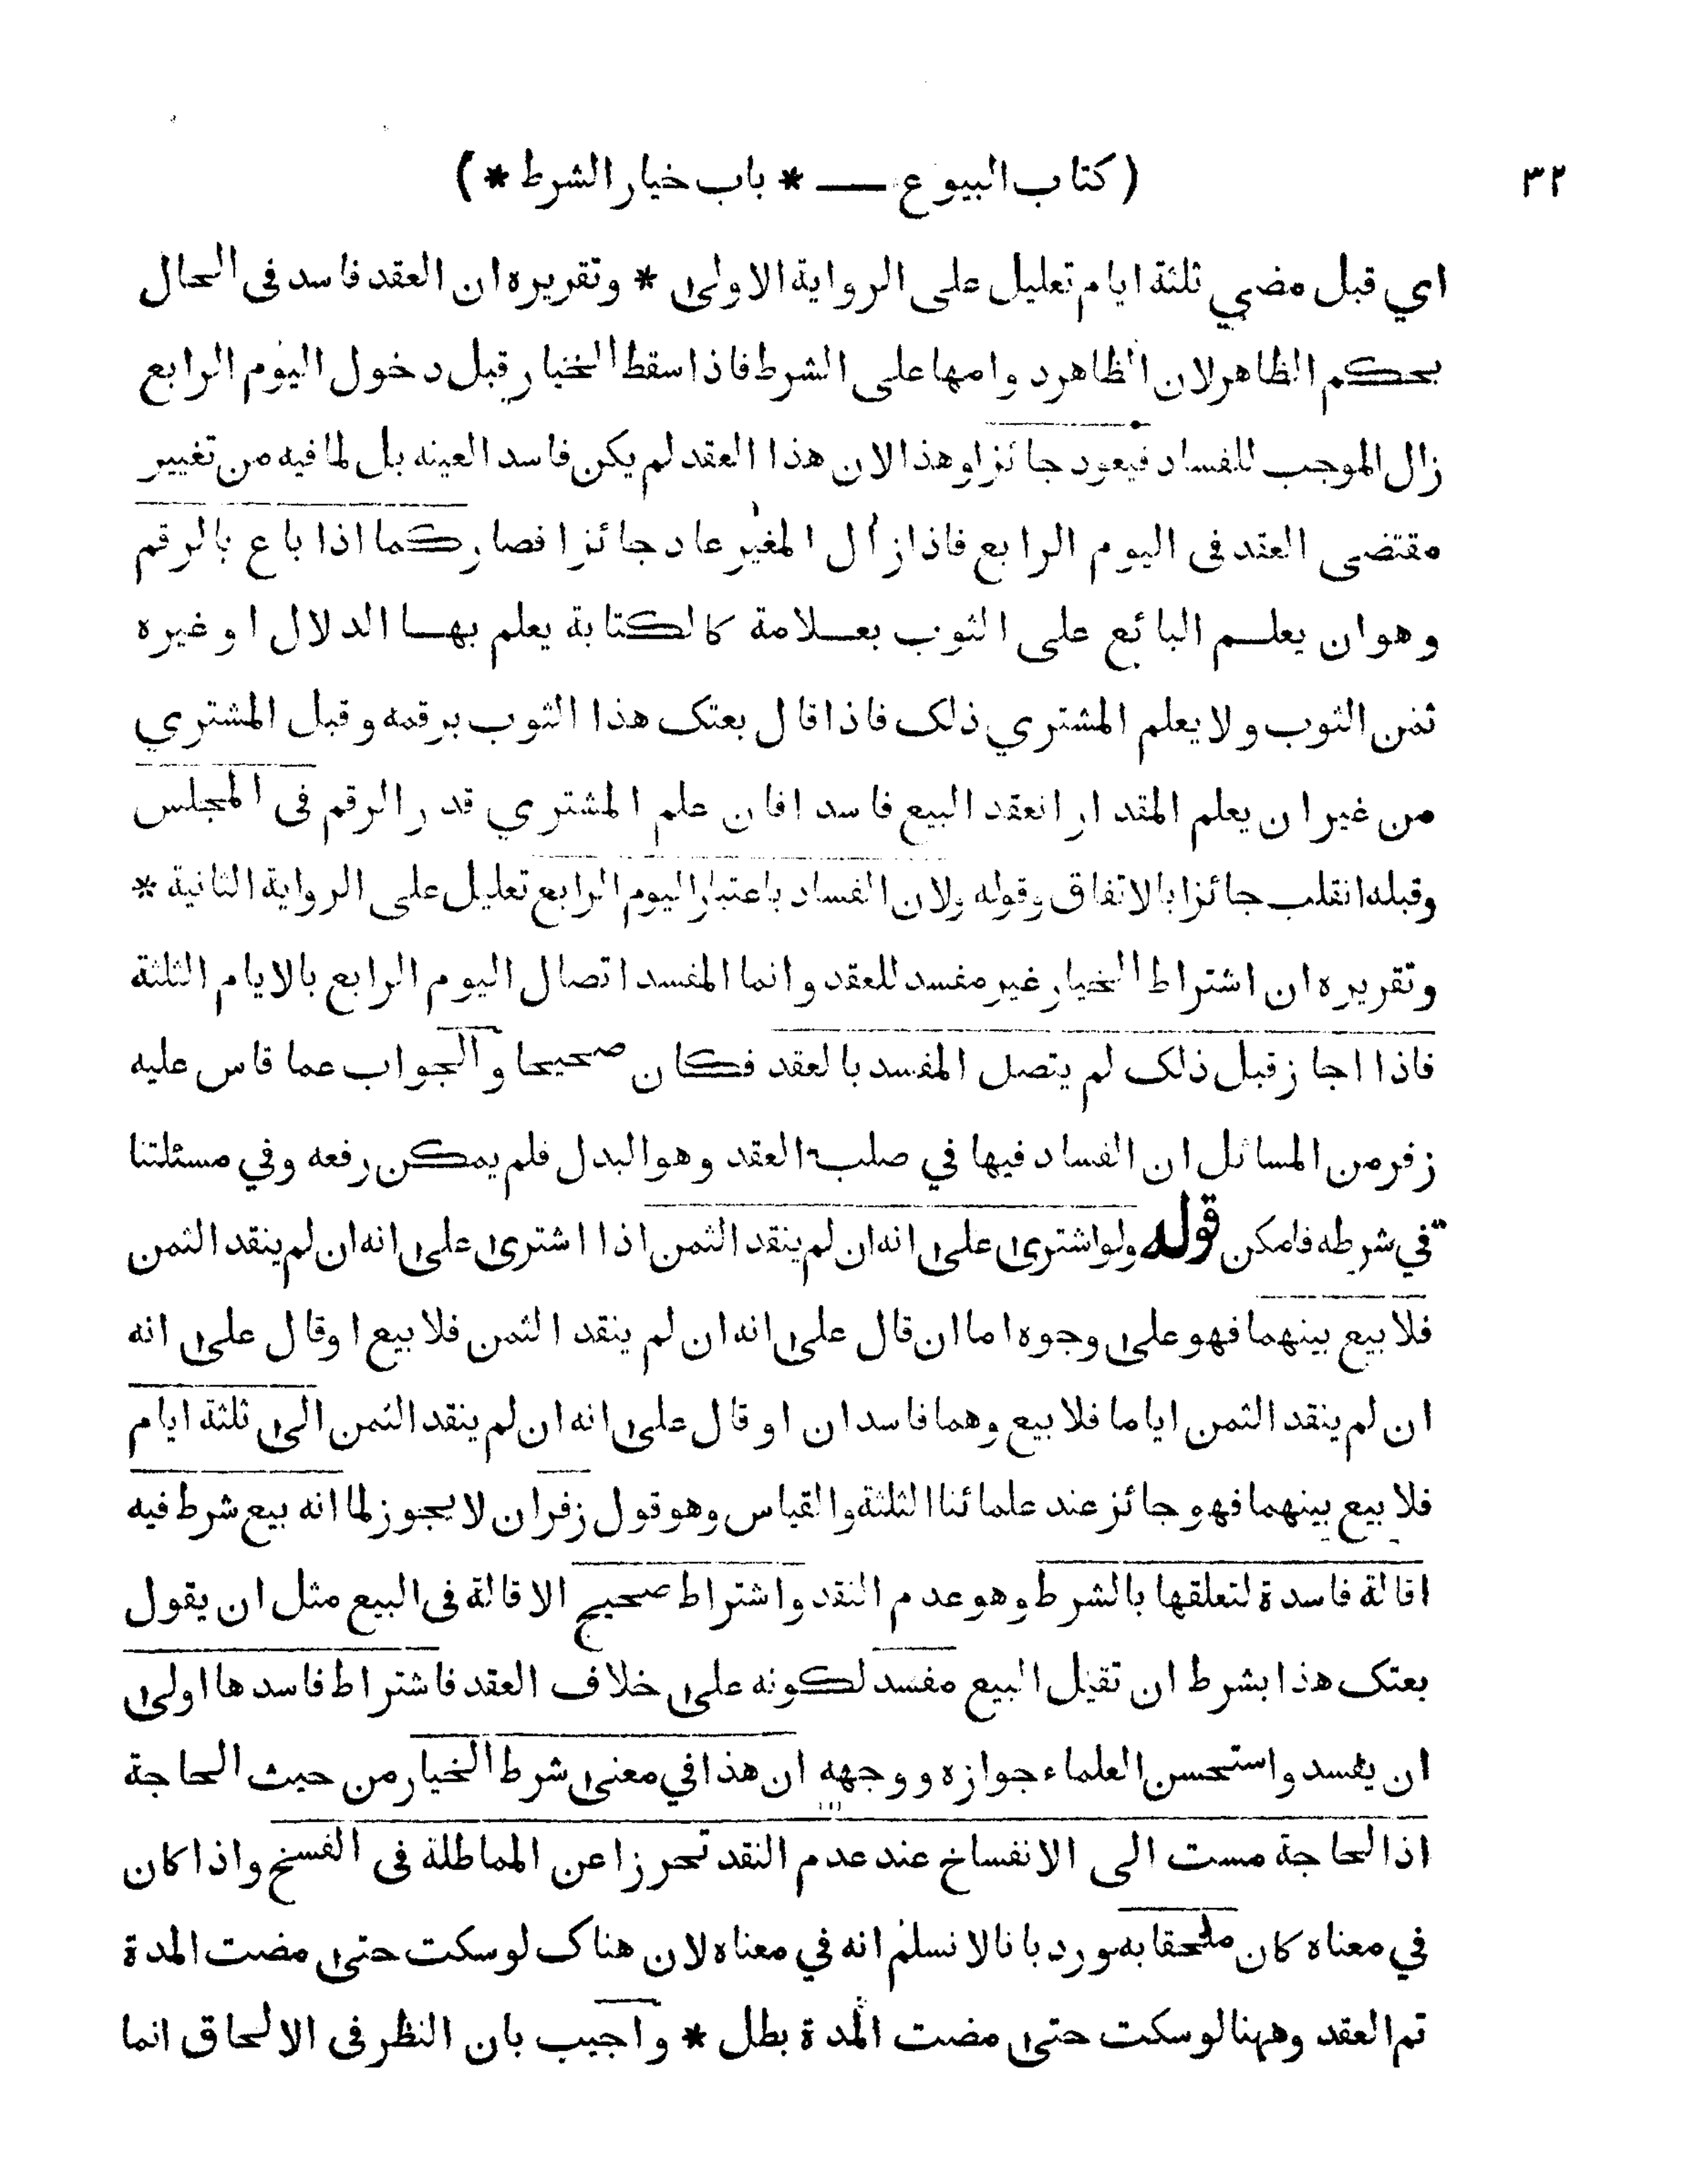 ٣٢ (كتاب البيوع ـــ * باب خيار الشرط *)
اي قبل مضي ثلثة ايام تعليل على الرواية الاولى * وتقريره ان العقد فاسد فى الحال
بحكم الظاهر لان الظاهر دوامها على الشرط فاذا سقط الخيار قبل دخول اليوم الرابع
زال الموجب للفساد فيعود جائزا وهذا لان هذا العقد لم يكن فاسد العينه بل لما فيه من تغيير
مقتضى العقد فى اليوم الرابع فاذا زال المغير عاد جائزا فصار كما اذا باع بالرقم
وهو ان يعلم البائع على الثوب بعلامة كالكتابة يعلم بها الدلال او غيره
ثمن الثوب ولا يعلم المشتري ذلك فاذا قال بعتك هذا الثوب برقمه وقبل المشتري
من غير ان يعلم المقدار انعقد البيع فاسدا فان علم المشتري قدر الرقم فى المجلس
وقبله انقلب جائزا بالاتفاق وقوله ولان الفساد باعتبار اليوم الرابع تعليل على الرواية الثانية *
وتقريره ان اشتراط الخيار غير مفسد للعقد وانما المفسد اتصال اليوم الرابع بالايام الثلثة
فاذا اجاز قبل ذلك لم يتصل المفسد بالعقد فكان صحيحا والجواب عما قاس عليه
زفر من المسائل ان الفساد فيها في صلب العقد وهو البدل فلم يمكن رفعه وفي مسئلتنا
في شرطه فامكن قوله ولو اشترى على انه ان لم ينقد الثمن اذا اشترى على انه ان لم ينقد الثمن
فلا بيع بينهما فهو على وجوه اما ان قال على انه ان لم ينقد الثمن فلا بيع او قال على انه
ان لم ينقد الثمن اياما فلا بيع وهما فاسدان او قال على انه ان لم ينقد الثمن الى ثلثة ايام
فلا بيع بينهما فهو جائز عند علمائنا الثلثة والقياس وهو قول زفر ان لا يجوز لما انه بيع شرط فيه
اقالة فاسدة لتعلقها بالشرط وهو عدم النقد واشتراط صحيح الاقالة فى البيع مثل ان يقول
بعتك هذا بشرط ان تقيل البيع مفسد لكونه على خلاف العقد فاشتراط فاسدها اولى
ان يفسد واستحسن العلماء جوازه ووجهه ان هذا في معنى شرط الخيار من حيث الحاجة
اذ الحاجة مست الى الانفساخ عند عدم النقد تحرزا عن المماطلة فى الفسخ واذا كان
في معناه كان ملحقا به ورد بانا لا نسلم انه في معناه لان هناك لو سكت حتى مضت المدة
تم العقد وههنا لو سكت حتى مضت المدة بطل * واجيب بان النظر فى الالحاق انما